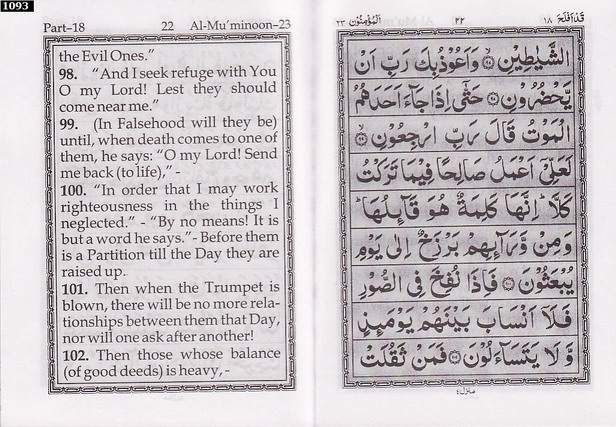 1093
Part-18 22 Al-Mu’minoon-23
the Evil Ones.”
98. “And I seek refuge with You
O my Lord! Lest they should
come near me.”
99. (In Falsehood will they be)
until, when death comes to one of
them, he says: “O my Lord! Send
me back (to life),” -
100. “In order that I may work
righteousness in the things I
neglected.” - “By no means! It is
but a word he says.”- Before them
is a Partition till the Day they are
raised up.
101. Then when the Trumpet is
blown, there will be no more rela-
tionships between them that Day,
nor will one ask after another!
102. Then those whose balance
(of good deeds) is heavy,-
قَدْ اَفْلَحَ ١٨ ٢٢ اَلْمُؤْمِنُوْن ٢٣
الشَّيٰطِيْنِ ۙ﴿٩٧﴾ وَاَعُوْذُ بِكَ رَبِّ اَنْ
يَّحْضُرُوْنِ ﴿٩٨﴾ حَتّٰۤى اِذَا جَآءَ اَحَدَهُمُ
الْمَوْتُ قَالَ رَبِّ ارْجِعُوْنِ ۙ﴿٩٩﴾
لَعَلِّيْۤ اَعْمَلُ صَالِحًا فِيْمَا تَرَكْتُ
كَلَّا ؕ اِنَّهَا كَلِمَةٌ هُوَ قَآئِلُهَا ؕ
وَمِنْ وَّرَآئِهِمْ بَرْزَخٌ اِلٰى يَوْمِ
يُبْعَثُوْنَ ﴿١٠٠﴾ فَاِذَا نُفِخَ فِى الصُّوْرِ
فَلَاۤ اَنْسَابَ بَيْنَهُمْ يَوْمَئِذٍ
وَّلَا يَتَسَآءَلُوْنَ ﴿١٠١﴾ فَمَنْ ثَقُلَتْ
منزل ٤